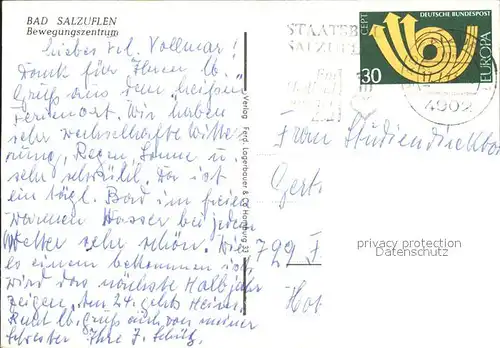 BAD SALZUFLEN
Bewegungszentrum
liebes Frl. Vollmar!
Dank für Ihren lb.
Gruß aus dem heißen
Ferienort. Wir haben
sehr wechselhafte Witte-
rung, Regen, Sonne u.
sehr Da ist
ein tägl. Bad im freien
warmen Wasser bei jedem
Wetter sehr schön. Wie
es einem bekommen ist,
wird das nächste Halbjahr
zeigen. Am 24. gehts Heim.
lb. Gruß auch von meiner
Schwester Ihre J.
Verlag Ferd. Lagerbauer & Co Hamburg 33
STAATSBAD
SALZUFLEN
CEPT
DEUTSCHE BUNDESPOST
30
EUROPA
4902
Frau Studiendirektor
Gert
799 F
privacy protection
Datenschutz